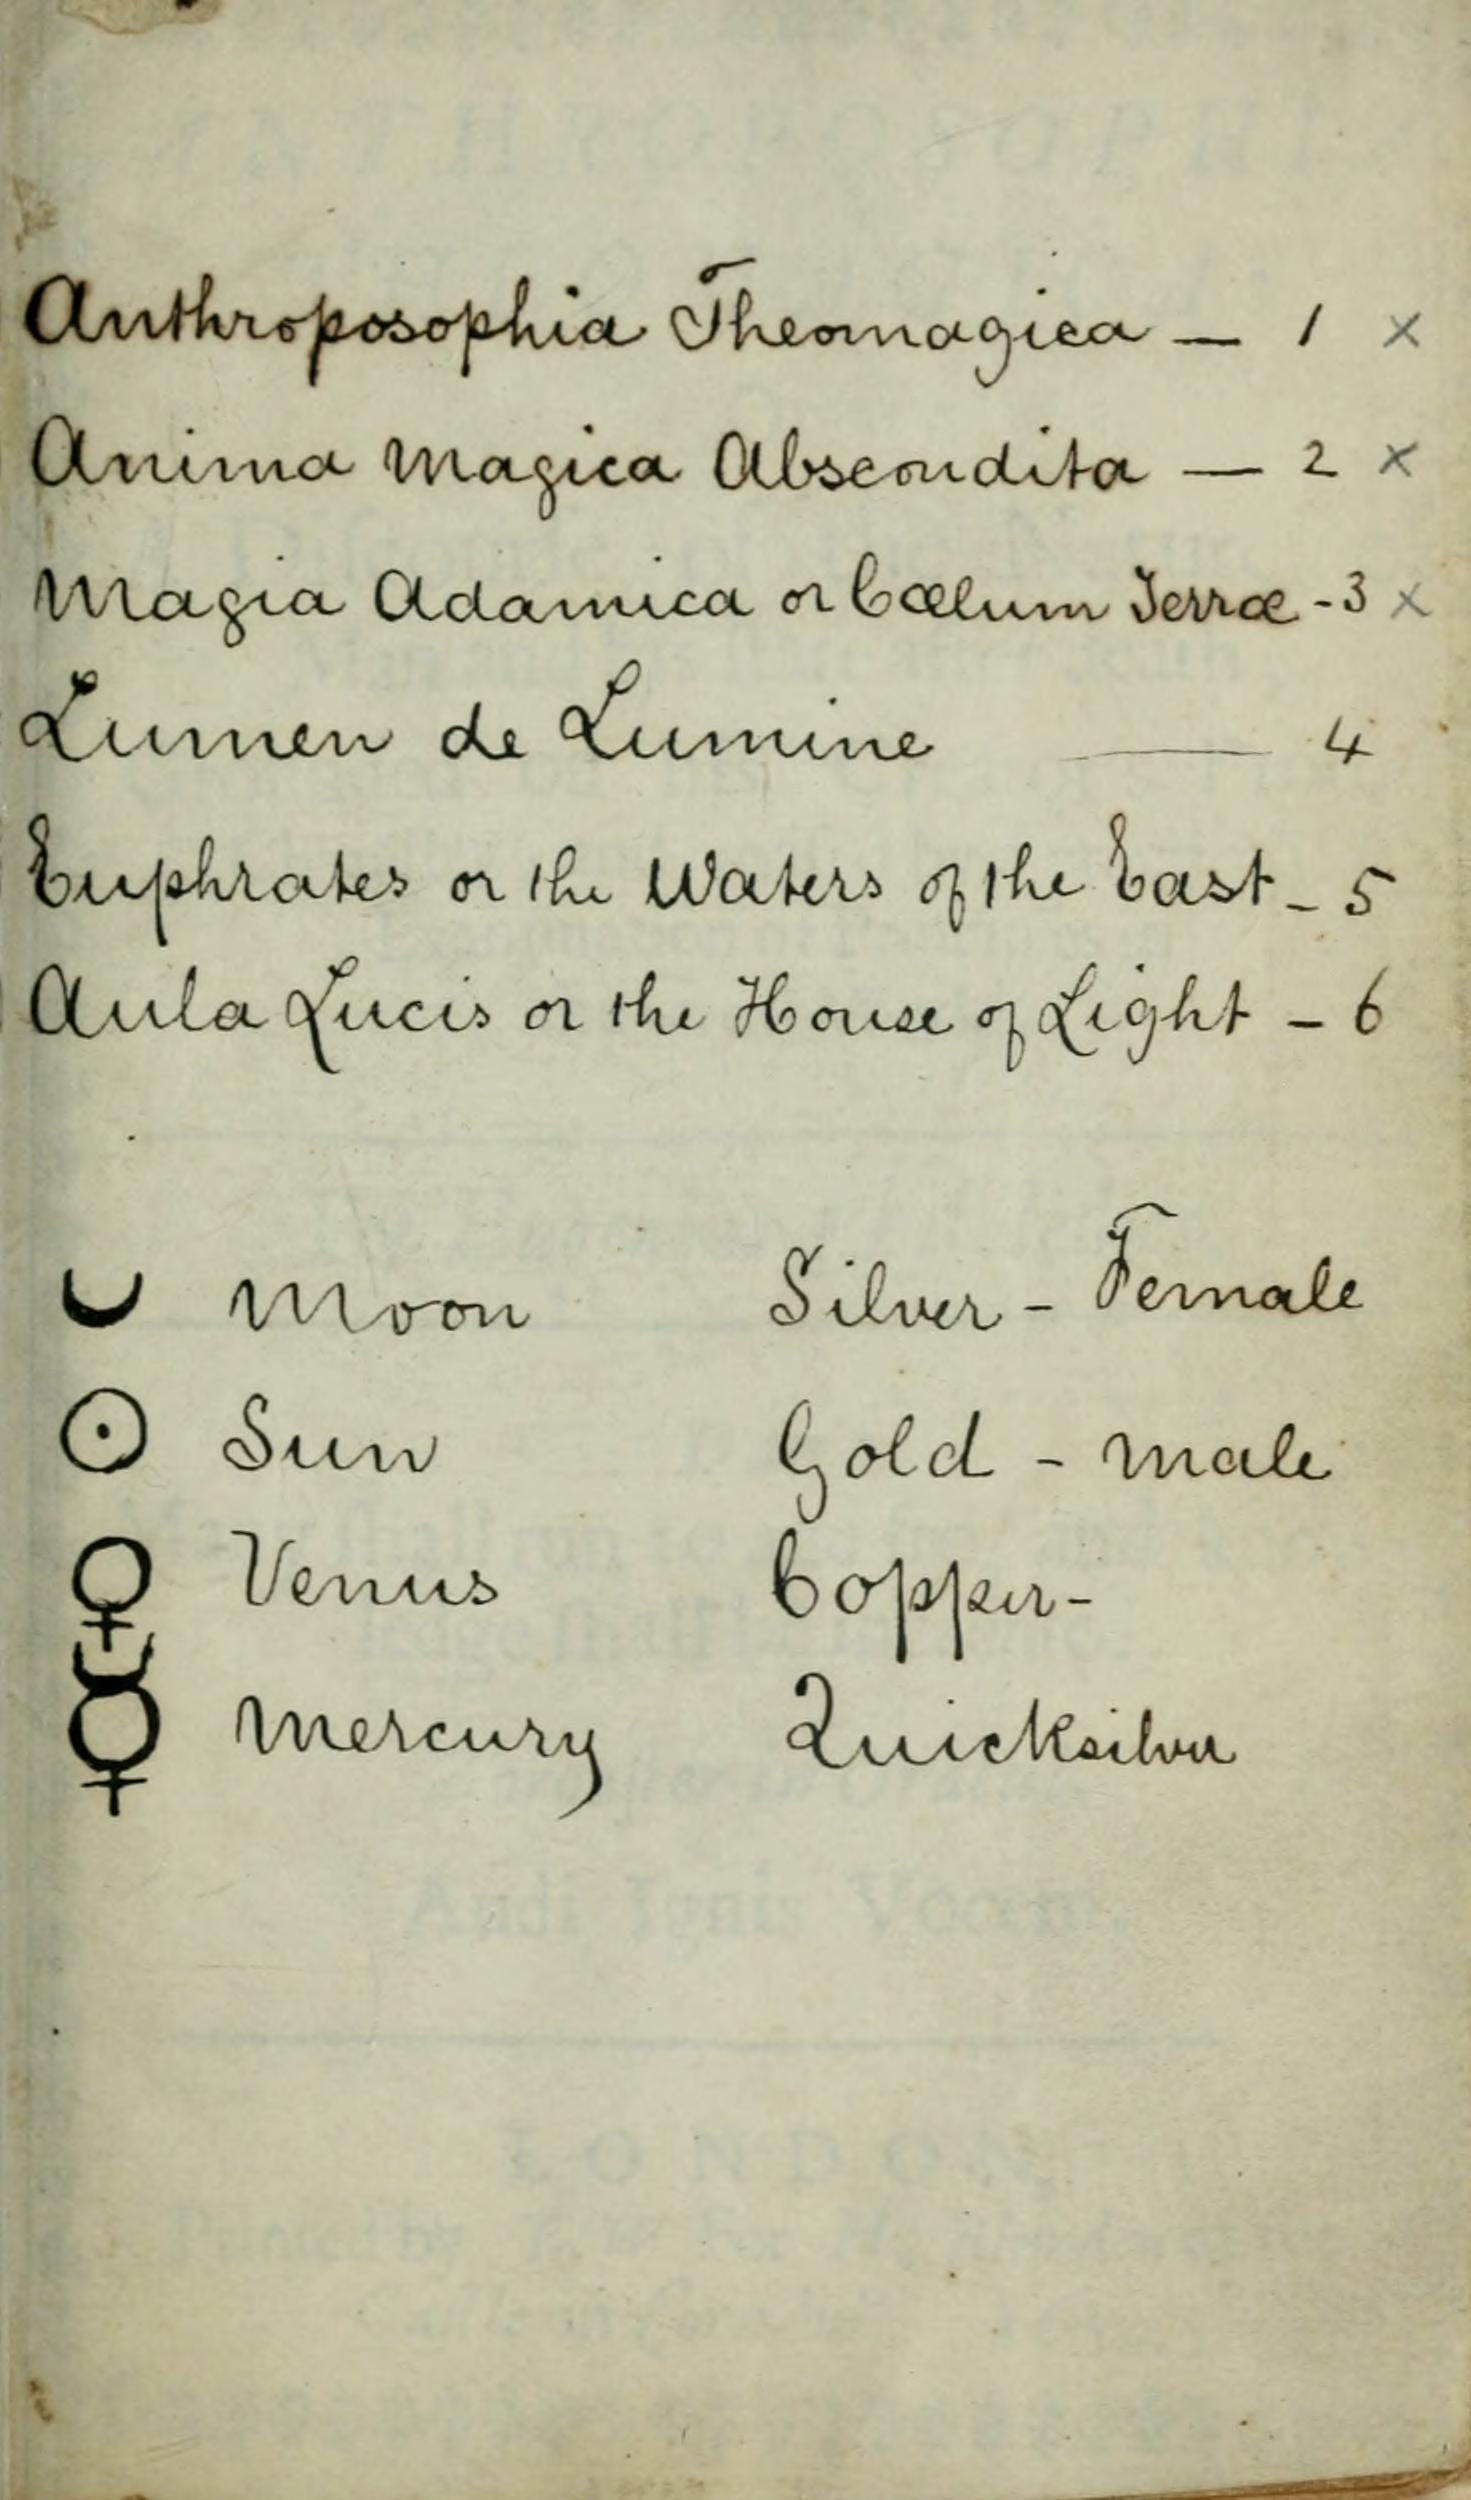 Anthroposophia Theomagica — 1 x
Anima Magica Abscondita — 2 x
Magia Adamica or Cœlum Terræ - 3 x
Lumen de Lumine — 4
Euphrates or the Waters of the East - 5
Aula Lucis or the House of Light - 6
☽ Moon Silver - Female
☉ Sun Gold - male
♀ Venus Copper -
☿ Mercury Quicksilver
Audi Ignis Vocem
LONDON
Printed by